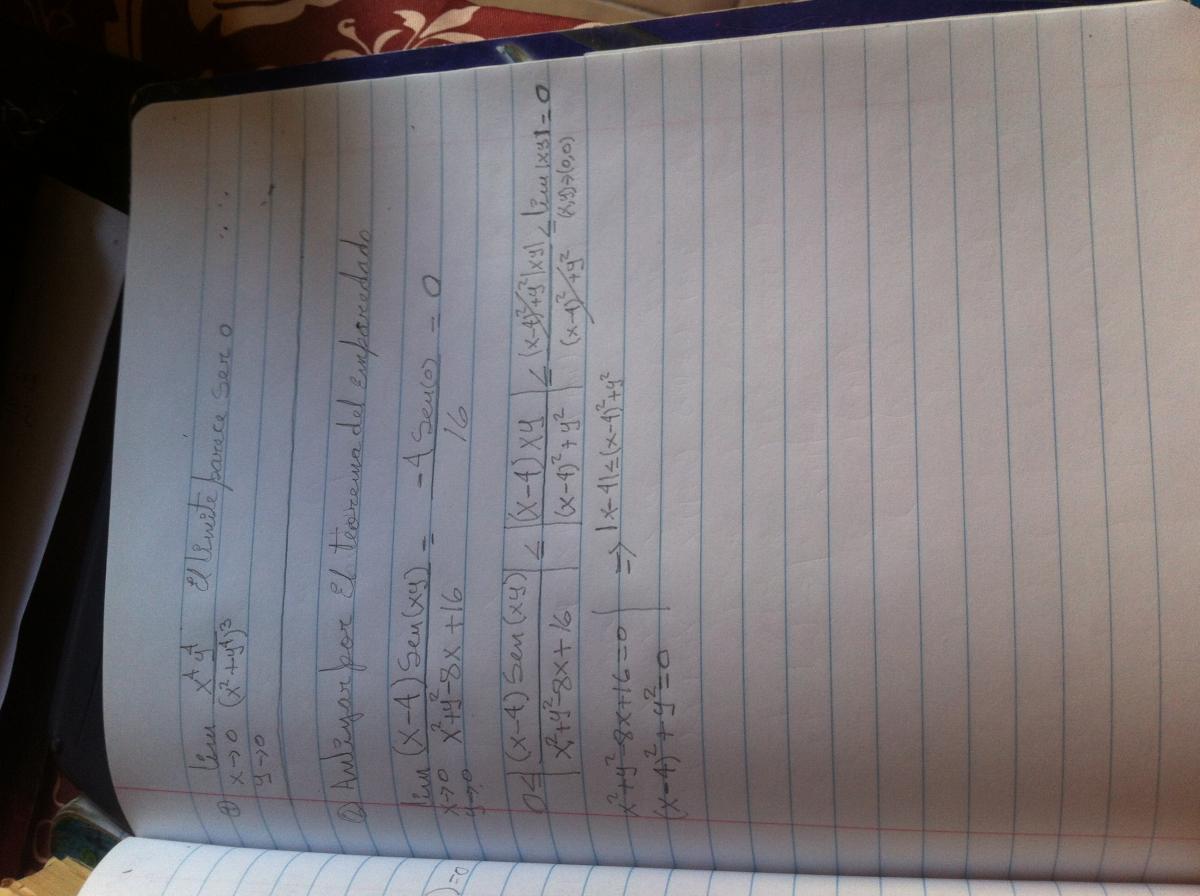 ④ lim x⁴y⁴/(x²+y⁴)³ El limite parece ser 0
x→0
y→0
① Anlizar por El teorema del Emparedado
lim (x-4)Sen(xy)/(x²+y²-8x+16) = -4 Sen(0)/16 = 0
x→0
y→0
0≤|(x-4)Sen(xy)/(x²+y²-8x+16)| ≤ |(x-4)xy/((x-4)²+y²)| ≤ (x-4)²+y²|xy|/((x-4)²+y²) ≤ lim |xy| = 0
(x,y)→(0,0)
x²+y²-8x+16=0 ⇒ |x-4|≤(x-4)²+y²
(x-4)²+y²=0
)=0